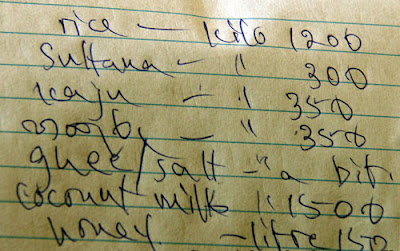 rice — kilo 1200
Sultana – " 300
kaju – " 350
– " 350
ghee/salt – "a bit
coconut milk " 1500
honey – litre 150